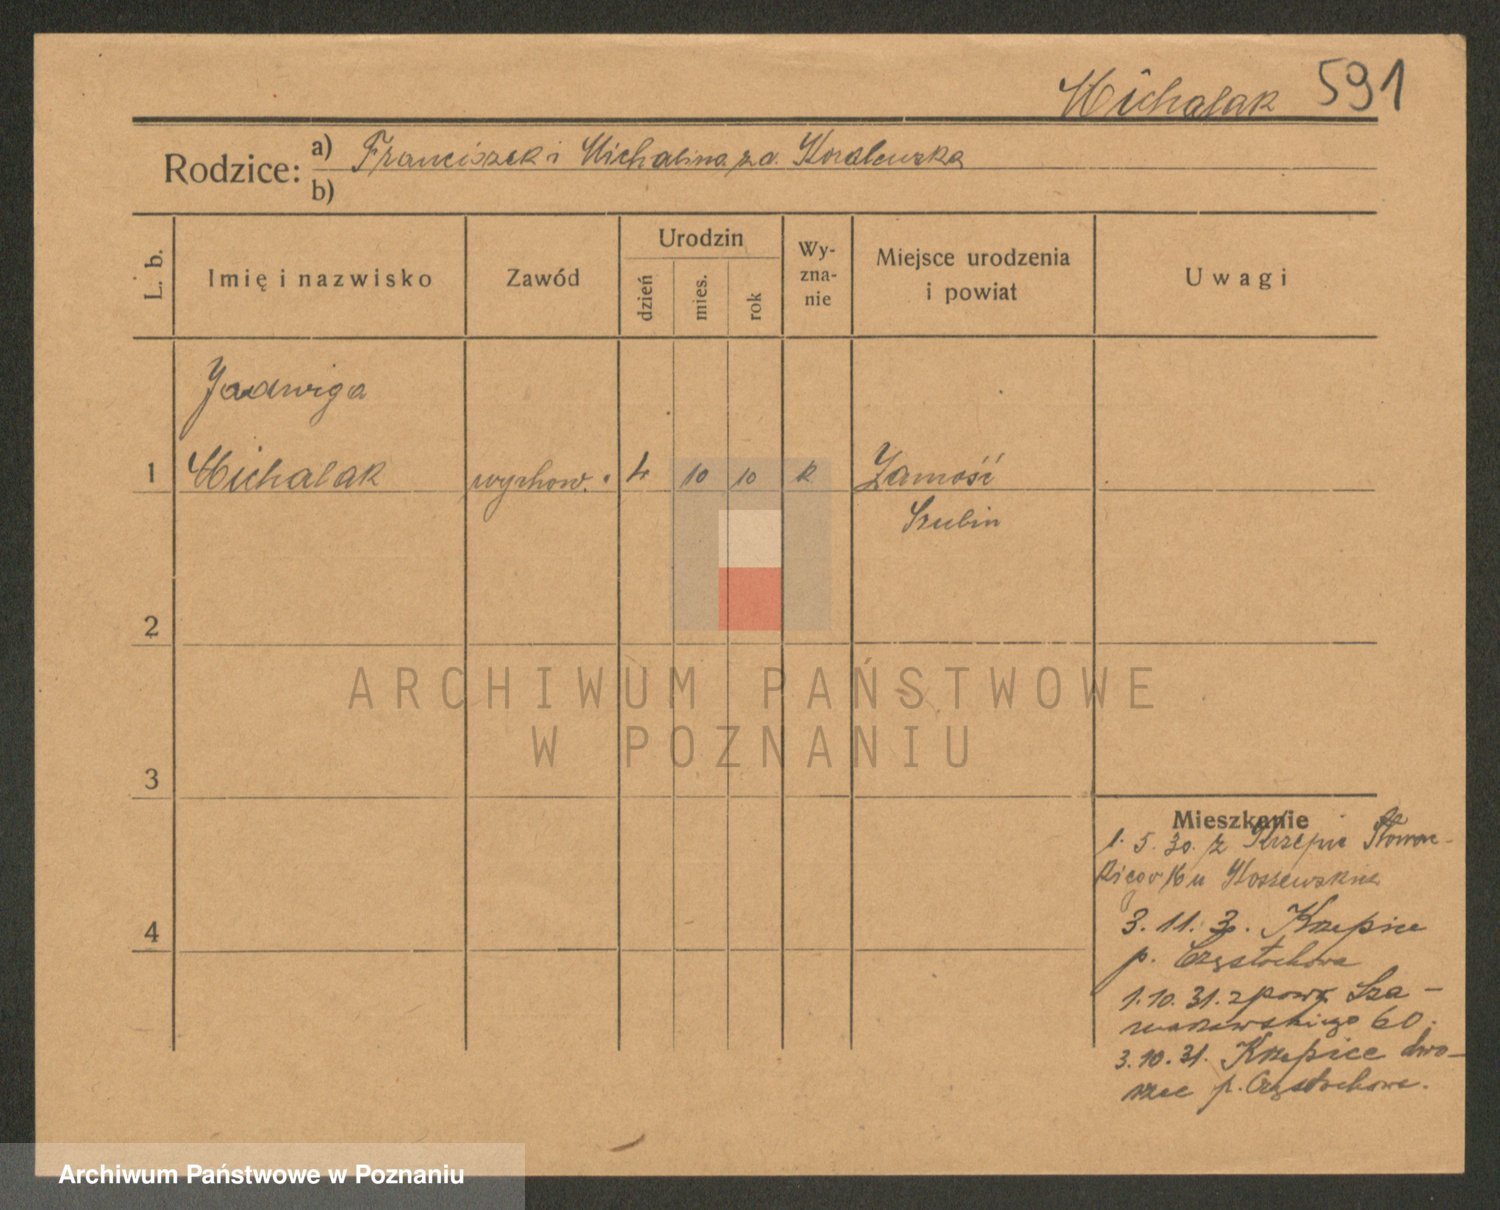 Michalak 591
Rodzice: a) Franciszek i Michalina z d. Koralewska
b)
L. b.
Imię i nazwisko
Zawód
Urodzin
dzień
mies.
rok
Wy-
zna-
nie
Miejsce urodzenia
i powiat
Uwagi
Jadwiga
1 Michalak wychow. 4 10 10 k Zamość
Szubin
2
ARCHIWUM PAŃSTWOWE
W POZNANIU
3
Mieszkanie
1. 5. 30. z Krzepic Słowac-
kiego 16 u
4
3. 11. 30. Krzepice
p. Częstochowa
1.10.31. z powr. Sza-
marzewskiego 60.
3.10.31. Krzepice dwo-
rzec p. Częstochowa.
Archiwum Państwowe w Poznaniu